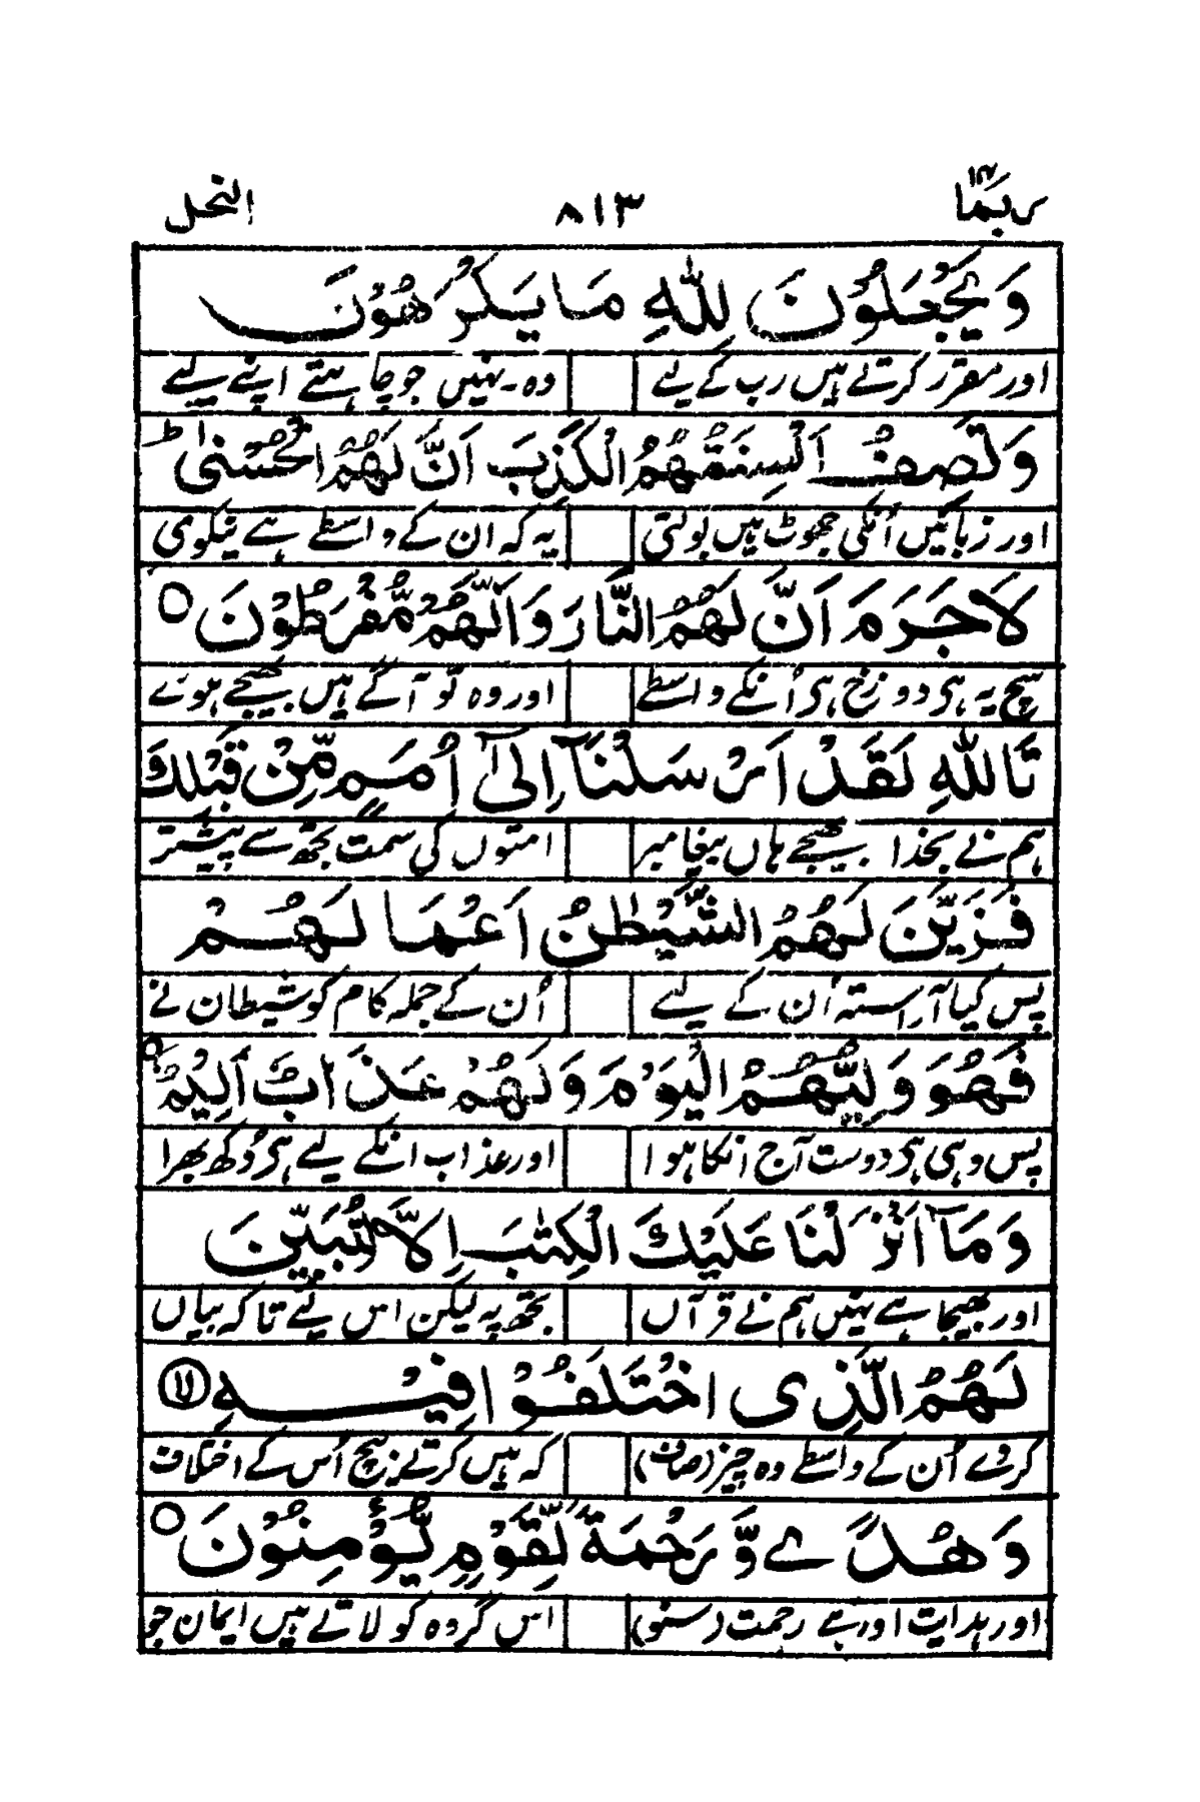 ربما ۱۴ ۸۱۳ النحل
وَيَجْعَلُوْنَ لِلّٰهِ مَا يَكْرَهُوْنَ
اور مقرر کرتے ہیں رب کے لیے وہ۔ نہیں جو چاہتے اپنے لیے
وَتَصِفُ اَلْسِنَتُهُمُ الْكَذِبَ اَنَّ لَهُمُ الْحُسْنٰى ؕ
اور زبانیں اُنکی جھوٹ ہیں بولتی یہ کہ ان کے واسطے ہے نیکوی
لَا جَرَمَ اَنَّ لَهُمُ النَّارَ وَاَنَّهُمْ مُّفْرَطُوْنَ ○
سچ یہ ہی دوزخ ہی اُنکے واسطے اور وہ تو آگے ہیں بھیجے ہوئے
تَاللّٰهِ لَقَدْ اَرْسَلْنَاۤ اِلٰۤى اُمَمٍ مِّنْ قَبْلِكَ
ہم نے بخدا بھیجے ہاں پیغامبر امتوں کی سمت تجھ سے پیشتر
فَزَيَّنَ لَهُمُ الشَّيْطٰنُ اَعْمَالَهُمْ
پس کیا آراستہ اُن کے لیے اُن کے جملہ کام کو شیطان نے
فَهُوَ وَلِيُّهُمُ الْيَوْمَ وَلَهُمْ عَذَابٌ اَلِيْمٌ ○
پس وہی ہی دوست آج انکا ہوا اور عذاب انکے لیے ہی دُکھ بھرا
وَمَاۤ اَنْزَلْنَا عَلَيْكَ الْكِتٰبَ اِلَّا لِتُبَيِّنَ
اور بھیجا ہے نہیں ہم نے قرآں تجھ پہ لیکن اس لیے تاکہ بیاں
لَهُمُ الَّذِى اخْتَلَفُوْا فِيْهِ ⑪
کردے اُن کے واسطے وہ چیز (صاف) کہ ہیں کرتے بیچ اُس کے اختلاف
وَهُدًے وَّرَحْمَةً لِّقَوْمٍ يُّؤْمِنُوْنَ ○
اور ہدایت اور ہے رحمت (سنو) اس گروہ کو لاتے ہیں ایمان جو